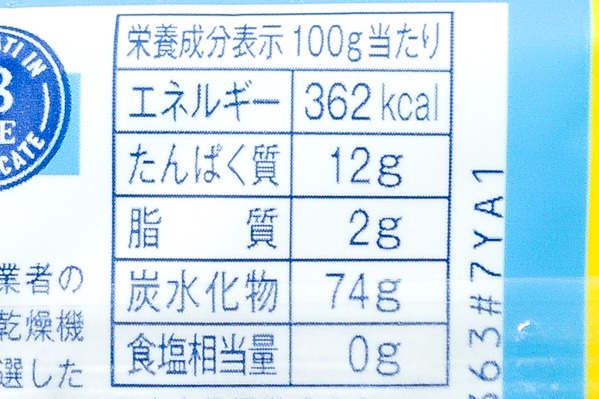 栄養成分表示 100g当たり
エネルギー 362kcal
たんぱく質 12g
脂質 2g
炭水化物 74g
食塩相当量 0g
業者の
乾燥機
選した
663#7YA1
TI IN
B
E
CATE